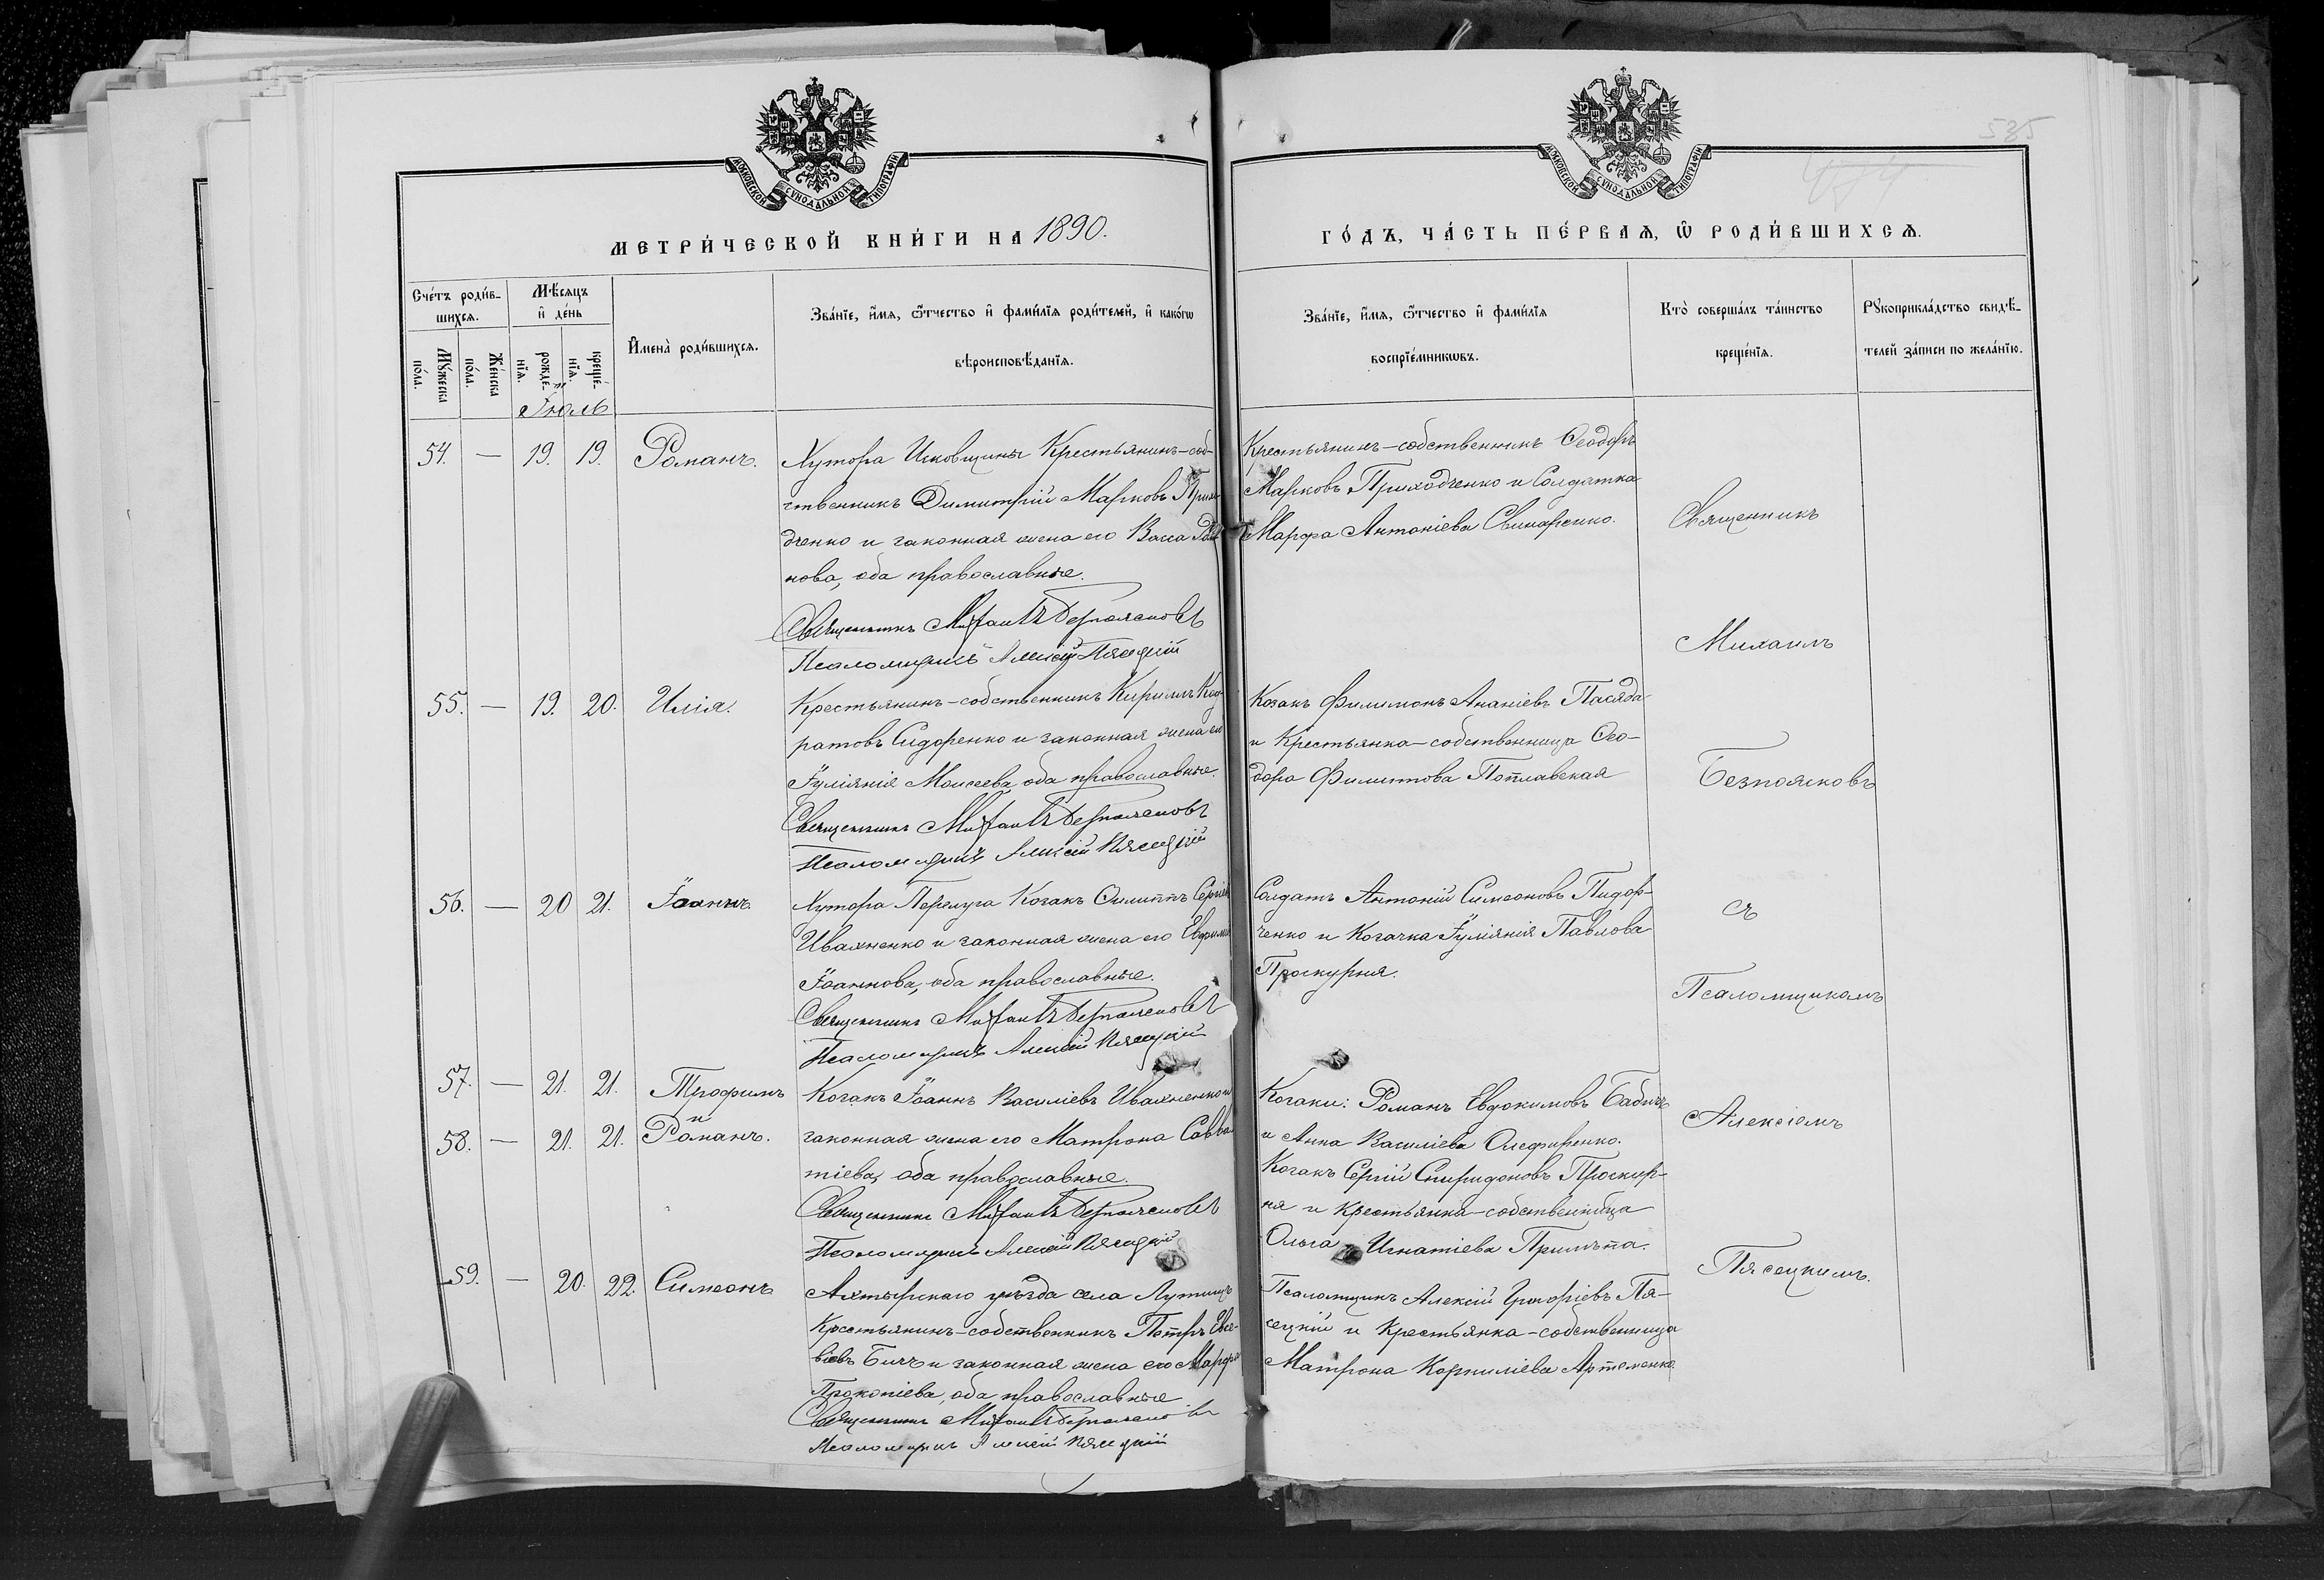 535
МОСКОВСКОЙ СУНОДАЛЬНОЙ ТИПОГРАФІИ
МОСКОВСКОЙ СУНОДАЛЬНОЙ ТИПОГРАФІИ
МЕТРИ́ЧЕСКОЙ КНИ́ГИ НА 1890.
ГО́ДЪ, ЧА́СТЬ ПЕ́РВАѦ, Ѡ҆ РОДИ́ВШИХСѦ.
Сче́тъ роди́в-
шихсѧ.
Мꙋ́жеска
по́ла.
Же́нска
по́ла.
Мѣ́сѧцъ
и҆ де́нь
рожде́-
нїѧ.
креще́-
нїѧ.
И҆мена̀ роди́вшихсѧ.
Зва́нїе, и҆́мѧ, ѻ҆́тчество и҆ фами́лїѧ роди́телей, и҆ како́гѡ
вѣроисповѣ́данїѧ.
Зва́нїе, и҆́мѧ, ѻ҆́тчество и҆ фами́лїѧ
воспрїе́мникѡвъ.
Кто̀ соверша́лъ та́инство
креще́нїѧ.
Рꙋкоприкла́дство свидѣ́-
телей за́писи по жела́нїю.
Іюль
54. — 19. 19. Романъ.
Хутора Исковщины Крестьянинъ-соб-
ственникъ Димитрій Марковъ Прихо
дченко и законная жена его Васса
нова, оба православные.
Священникъ Михаилъ Безпоясковъ
Псаломщикъ Алексій Пясецкій
Крестьянинъ-собственникъ Ѳеодоръ
Марковъ Приходченко и Солдатка
Марфа Антоніева Свинаренко.
55. — 19. 20. Илія.
Крестьянинъ-собственникъ Кириллъ Код-
ратовъ Сидоренко и законная жена его
Іуліянія Моисеева, оба православные.
Священникъ Михаилъ Безпоясковъ
Псаломщикъ Алексій Пясецкій
Козакъ Филимонъ Ананіевъ Пасяда
и Крестьянка-собственница Ѳео-
дора Филиппова Поплавская
56. — 20 21. Іоаннъ.
Хутора Перелуга Козакъ Филиппъ Сергіев
Ивахненко и законная жена его Евфимія
Іоаннова, оба православные.
Священникъ Михаилъ Безпоясковъ
Псаломщикъ Алексій Пясецкій
Солдатъ Антоній Симеоновъ Пидор-
ченко и Козачка Іуліянія Павлова
Проскурня.
57. — 21. 21. Трофимъ
и
58. — 21. 21. Романъ.
Козакъ Іоаннъ Василіевъ Ивахненко и
законная жена его Матрона Савва
тіева, оба православные.
Священникъ Михаилъ Безпоясковъ
Псаломщикъ Алексій Пясецкій
Козаки: Романъ Евдокимовъ Бабичъ
и Анна Василіева Олефиренко.
Козакъ Сергій Спиридоновъ Проскур-
ня и Крестьянка-собственница
Ольга Игнатіева Примъпа.
59. — 20. 22. Симеонъ
Ахтырскаго уѣзда села Лутищъ
Крестьянинъ-собственникъ Петръ Евсе-
віевъ Бичъ и законная жена его Марфа
Прокопіева, оба православные
Священникъ Михаилъ Безпоясковъ
Псаломщикъ Алексій Пясецкій
Псаломщикъ Алексій Григоріевъ Пя-
сецкій и Крестьянка-собственница
Матрона Корниліева Артеменко.
Священникъ
Михаилъ
Безпоясковъ
съ
Псаломщикомъ
Алексіемъ
Пясецкимъ.